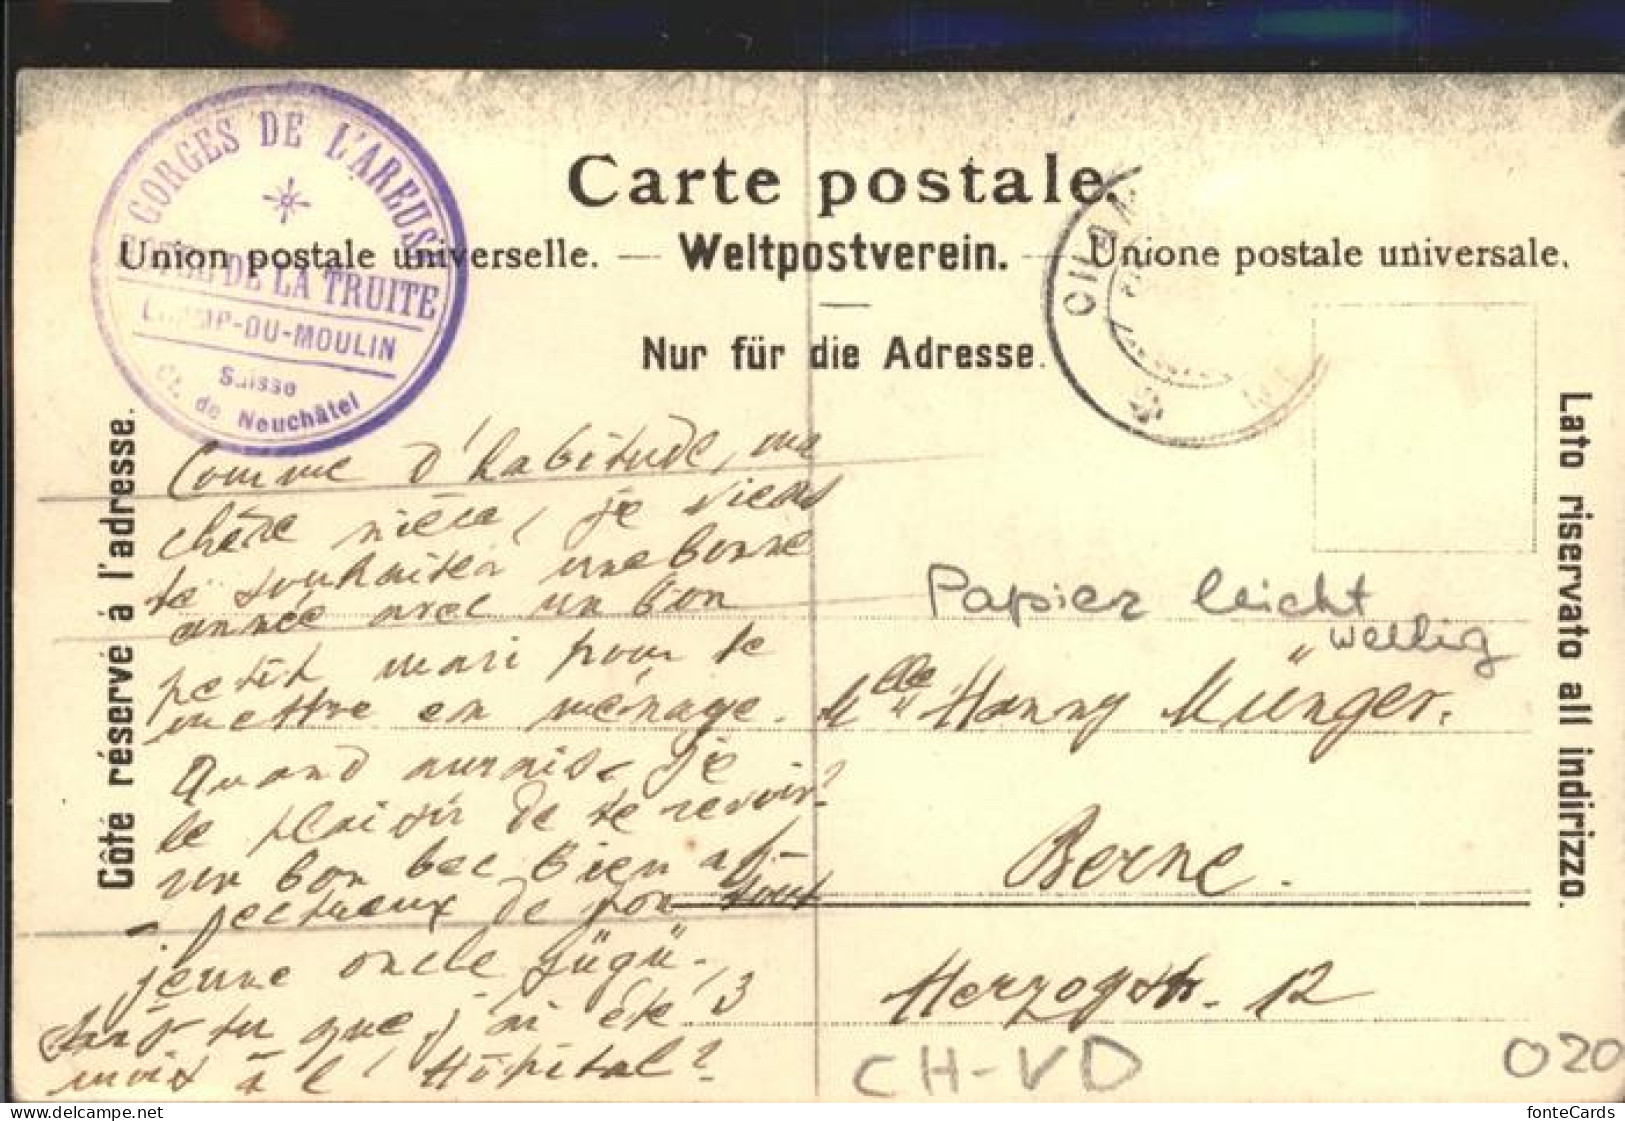 GORGES DE L'AREUSE
DE LA TRUITE
CHAMP-DU-MOULIN
Suisse
Ct. de Neuchâtel
Carte postale.
Union postale universelle. — Weltpostverein. — Unione postale universale.
Nur für die Adresse.
Côté réservé à l'adresse.
Lato riservato all indirizzo.
CHAM
Comme d'habitude, ma
chère nièce, je viens
te souhaiter une bonne
année avec un bon
petit mari pour te
mettre en ménage.
Quand aurais-je
le plaisir de te revoir?
un bon bec bien af-
fectueux de ton tout
jeune oncle Gügü.
Sais-tu que j'ai été 3
mois à l'Hôpital?
Papier leicht
wellig
Mlle Hanny Münger.
Berne.
Herzogstr. 12
CH-VD
020
fonteCards